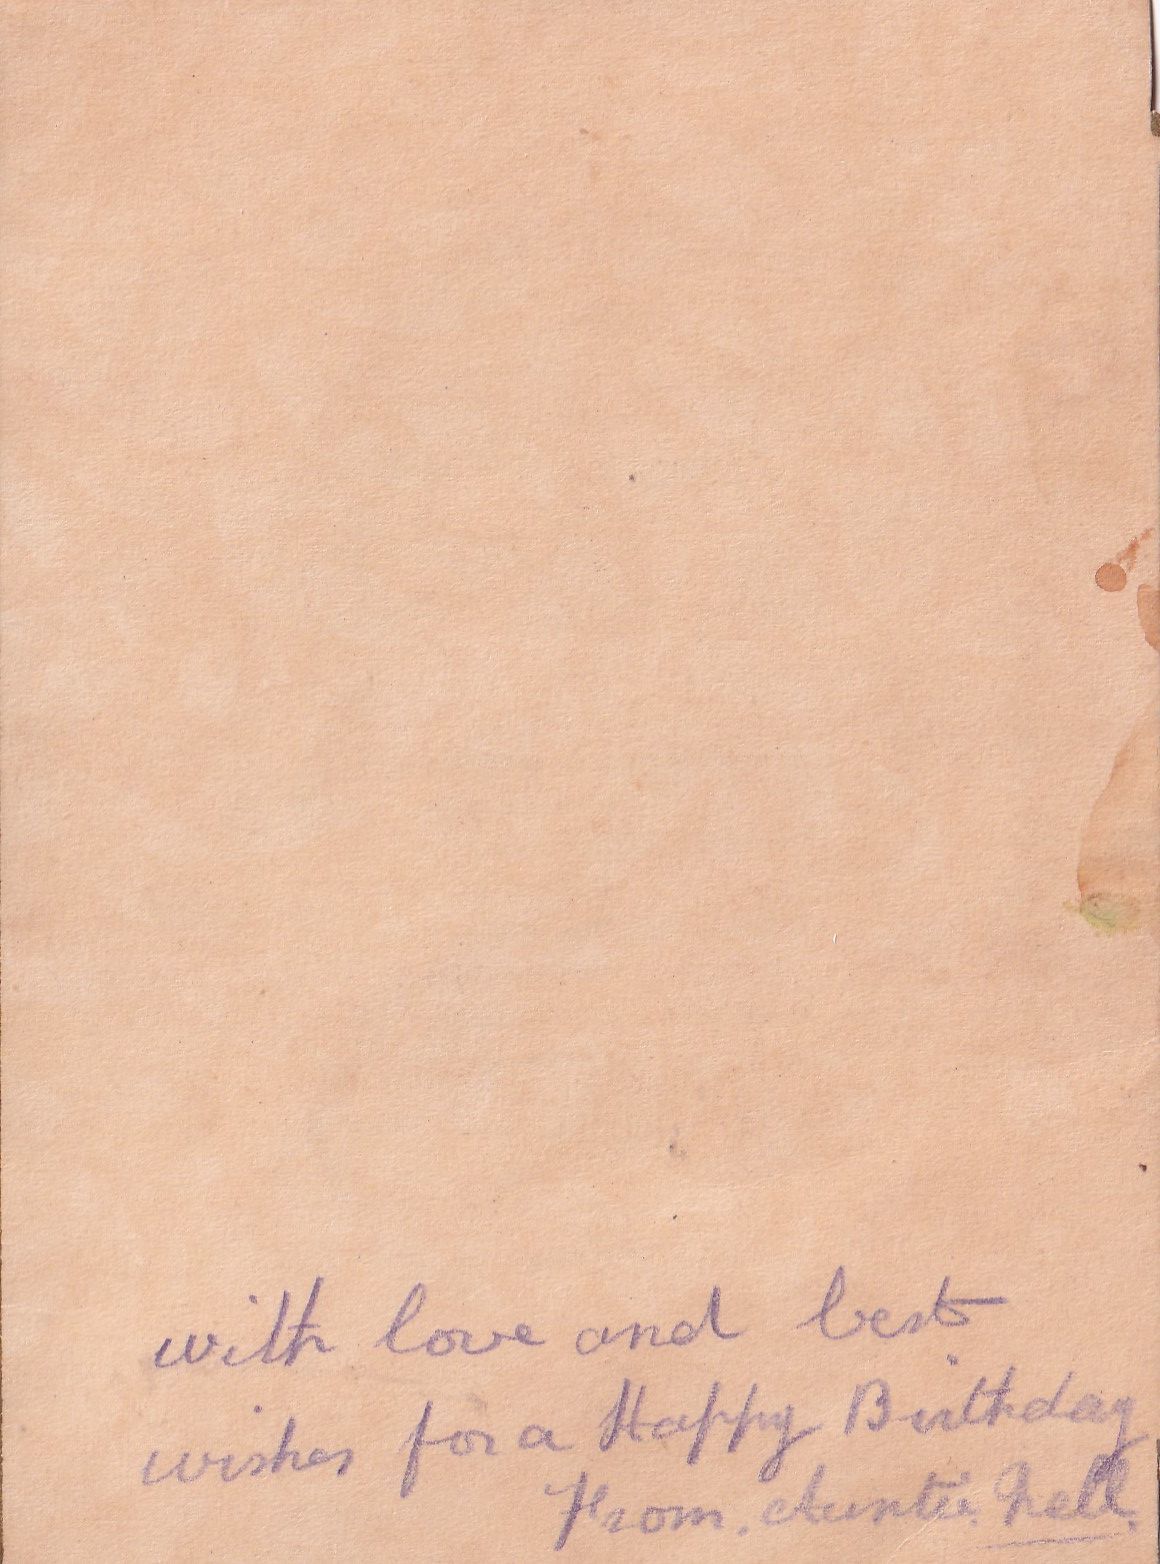 with love and best
wishes for a Happy Birthday
From. Auntie. Nell.